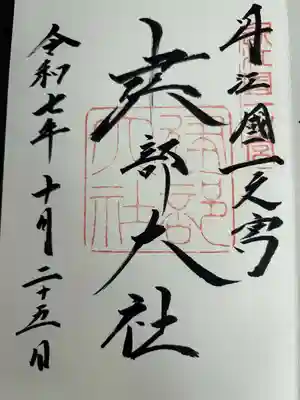 近江國一之宮
建部大社
令和七年十月二十五日
建部大社